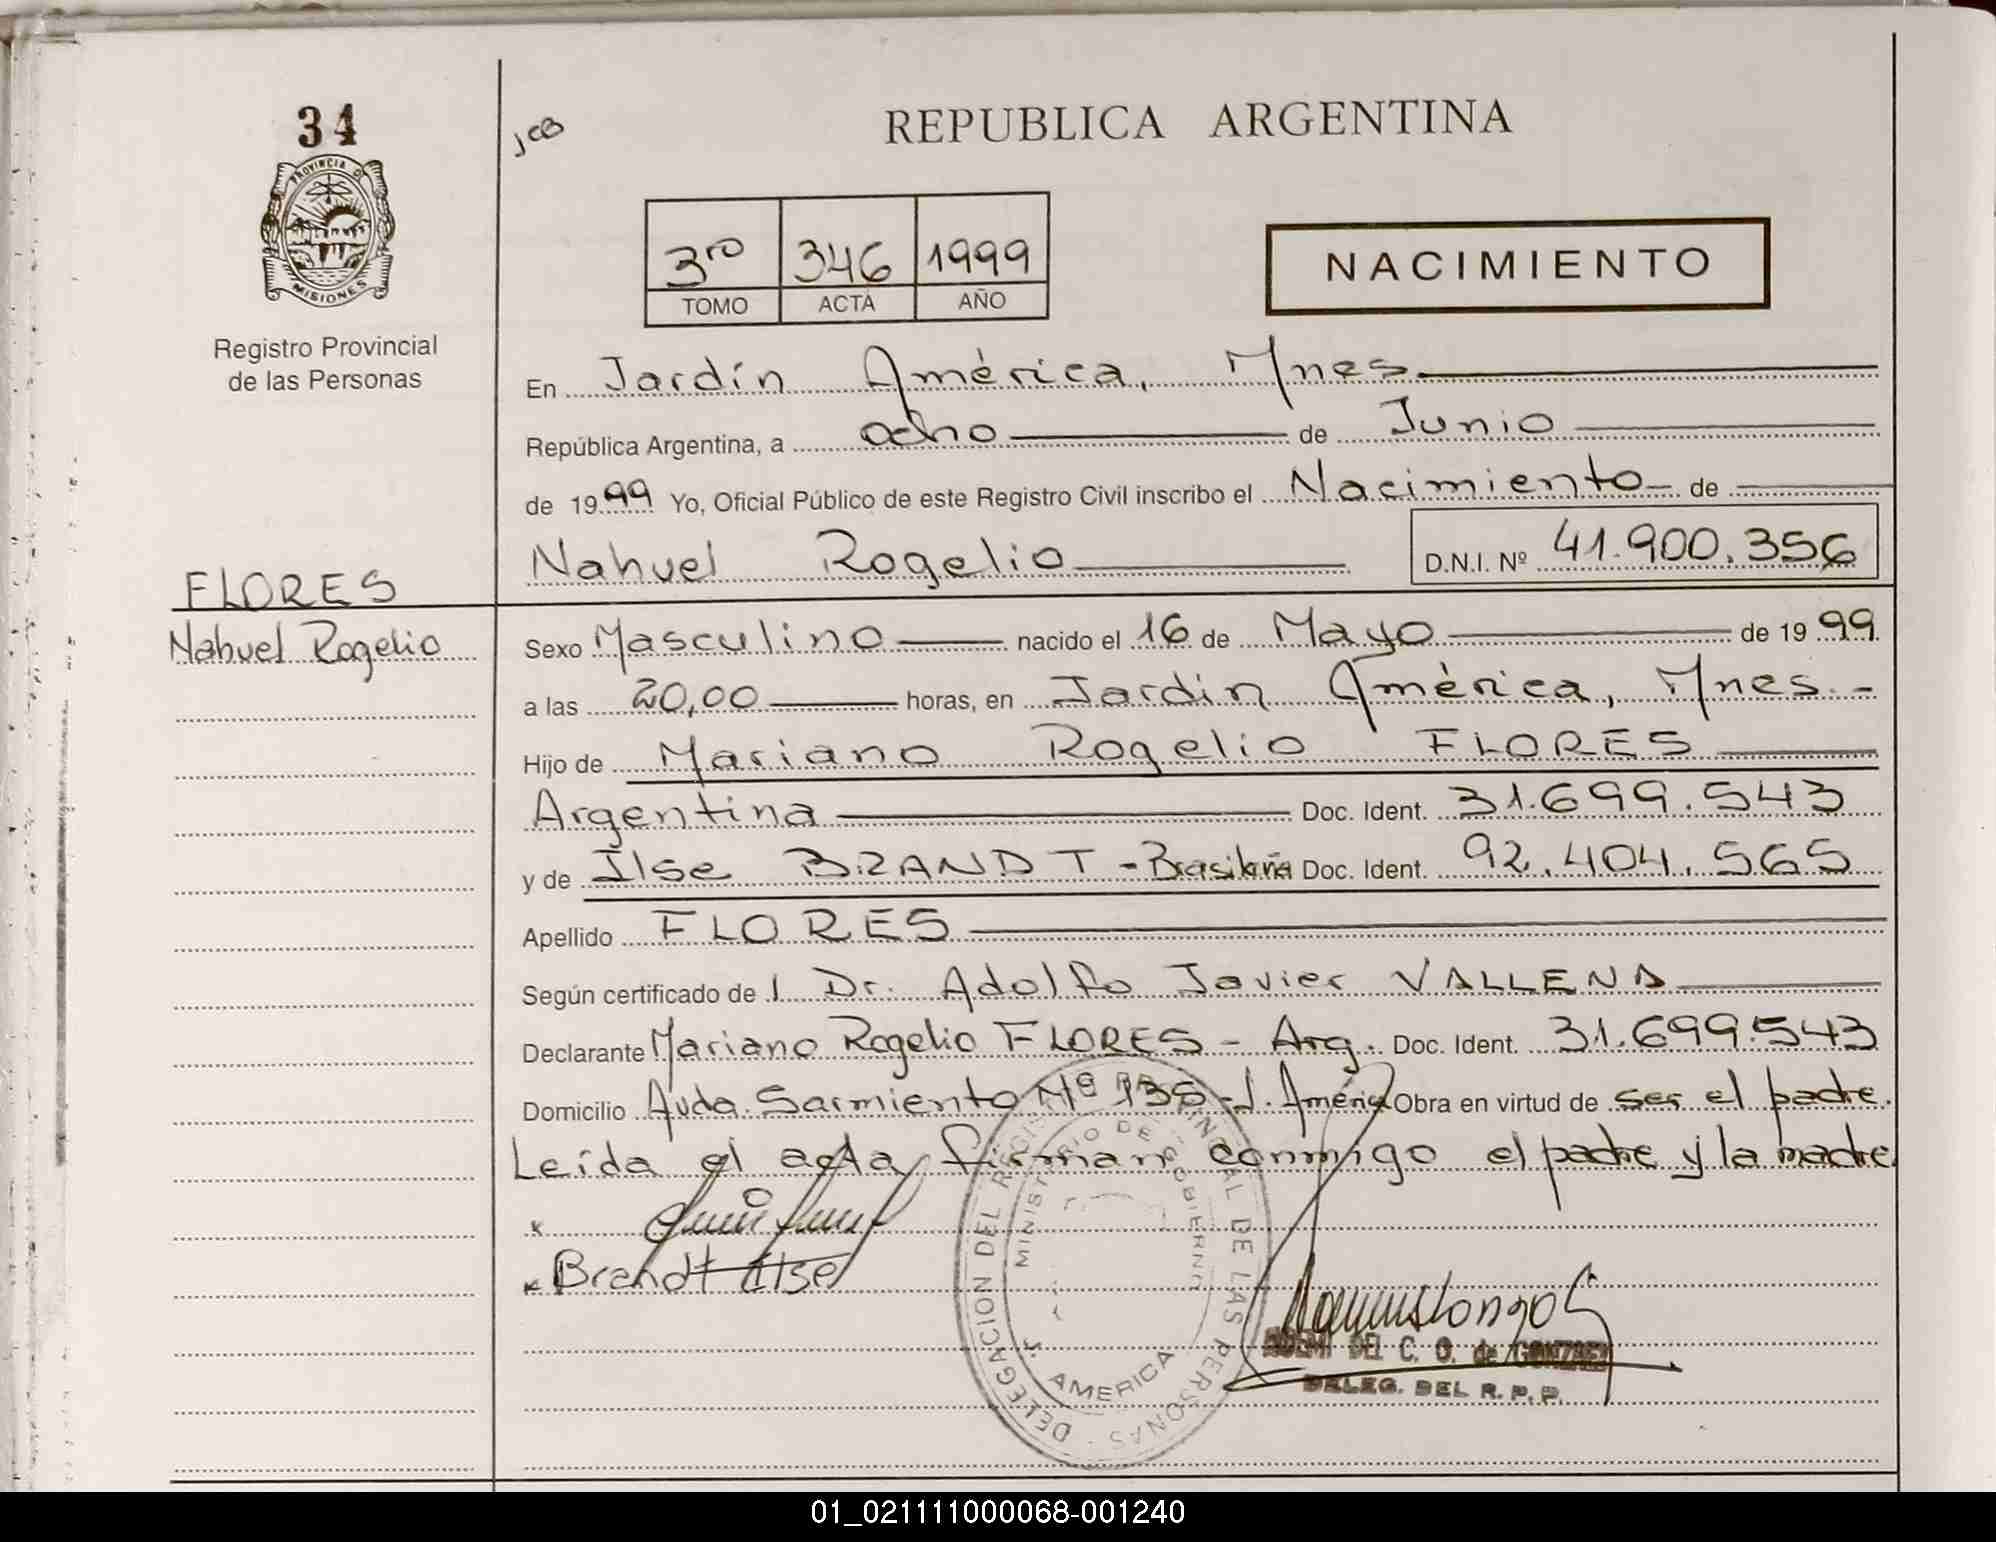 34
PROVINCIA D
MISIONES
Registro Provincial
de las Personas
FLORES
Nahuel Rogelio
JCB
REPUBLICA ARGENTINA
3ro 346 1999
TOMO ACTA AÑO
NACIMIENTO
En Jardín América, Mnes.
República Argentina, a ocho de Junio
de 1999 Yo, Oficial Público de este Registro Civil inscribo el Nacimiento de
Nahuel Rogelio D.N.I. Nº 41.900.356
Sexo Masculino nacido el 16 de Mayo de 1999
a las 20,00 horas, en Jardín América, Mnes.-
Hijo de Mariano Rogelio FLORES
Argentina Doc. Ident. 31.699.543
y de Ilse BRANDT - Brasileña Doc. Ident. 92.404.565
Apellido FLORES
Según certificado de l Dr. Adolfo Javier VALLENA
Declarante Mariano Rogelio FLORES - Arg. Doc. Ident. 31.699.543
Domicilio Avda. Sarmiento Nº 135 - J. América Obra en virtud de ser el padre.
Leída el acta, firman conmigo el padre y la madre
x
x Brandt Ilse
DELEGACION DEL REGISTRO PROVINCIAL DE LAS PERSONAS
MINISTERIO DE GOBIERNO
J. AMERICA
DEL C. O. de
DELEG. DEL R. P. P.
01_021111000068-001240